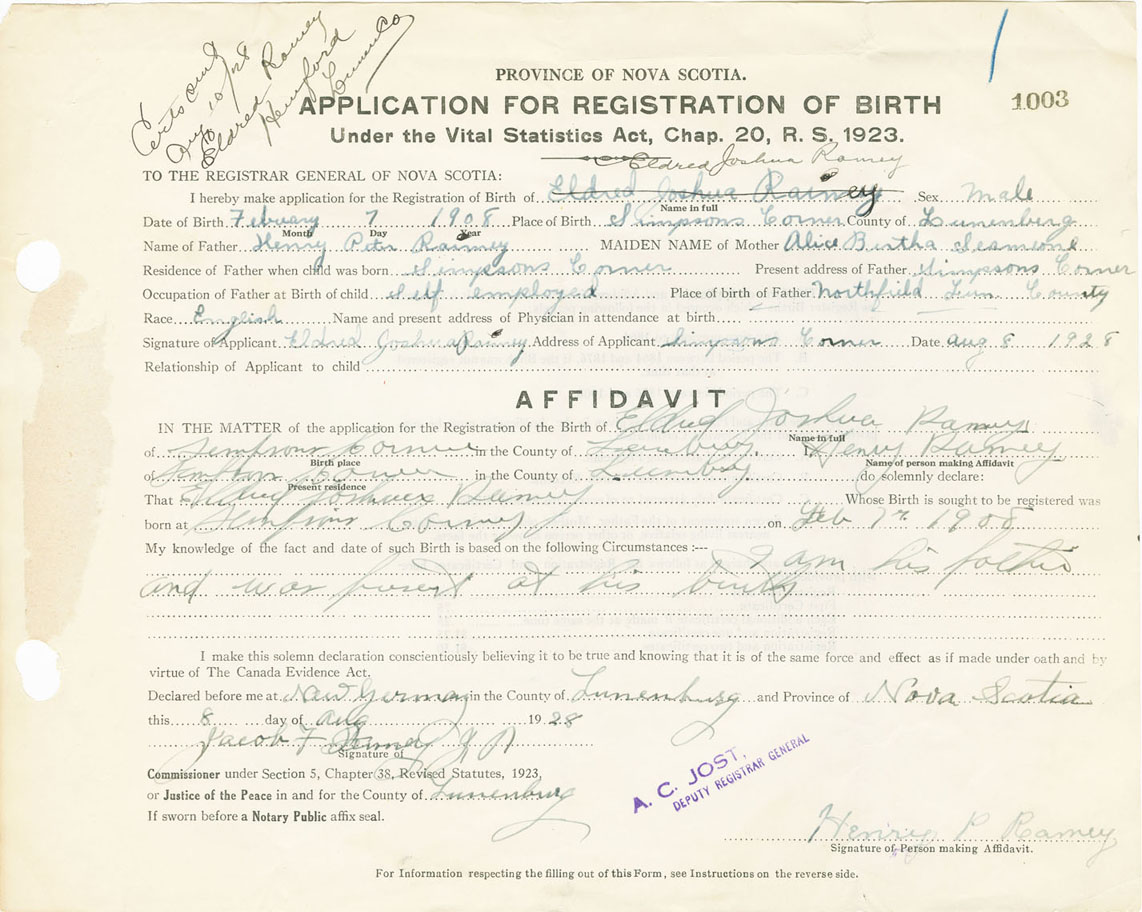 Certs and
Aug 10/28
to Eldred Ramey
Hemford
Lunen Co
PROVINCE OF NOVA SCOTIA.
APPLICATION FOR REGISTRATION OF BIRTH
1003
Under the Vital Statistics Act, Chap. 20, R. S. 1923.
Eldred Joshua Ramey
TO THE REGISTRAR GENERAL OF NOVA SCOTIA:
I hereby make application for the Registration of Birth of Eldred Joshua Rainey Sex Male
Name in full
Date of Birth Febuary 7 1908 Place of Birth Simpsons Corner County of Lunenburg
Month Day Year
Name of Father Henry Peter Rainey MAIDEN NAME of Mother Alice Birtha
Residence of Father when child was born Simpsons Corner Present address of Father Simpsons Corner
Occupation of Father at Birth of child Self employed Place of birth of Father Northfield Lun. County
Race English Name and present address of Physician in attendance at birth
Signature of Applicant Eldred Joshua Rainey Address of Applicant Simpsons Corner Date Aug 8 1928
Relationship of Applicant to child
AFFIDAVIT
IN THE MATTER of the application for the Registration of the Birth of Eldred Joshua Ramey
Name in full
of Simpsons Corner in the County of Lunburg. I Henry Ramey
Birth place Name of person making Affidavit
of Simpson Corner in the County of do solemnly declare:
Present residence
That Joshua Ramey Whose Birth is sought to be registered was
born at Simpsons Corner on Feb 7th 1908
My knowledge of the fact and date of such Birth is based on the following Circumstances :---
I am his father
and was present at his birth
I make this solemn declaration conscientiously believing it to be true and knowing that it is of the same force and effect as if made under oath and by
virtue of The Canada Evidence Act.
Declared before me at New Germany in the County of Lunenburg and Province of Nova Scotia
this 8 day of Aug 1928
Jacob F J P
Signature of
Commissioner under Section 5, Chapter 38, Revised Statutes, 1923,
or Justice of the Peace in and for the County of Lunenburg
If sworn before a Notary Public affix seal.
A. C. JOST,
DEPUTY REGISTRAR GENERAL
Henry P Ramey
Signature of Person making Affidavit.
For Information respecting the filling out of this Form, see Instructions on the reverse side.